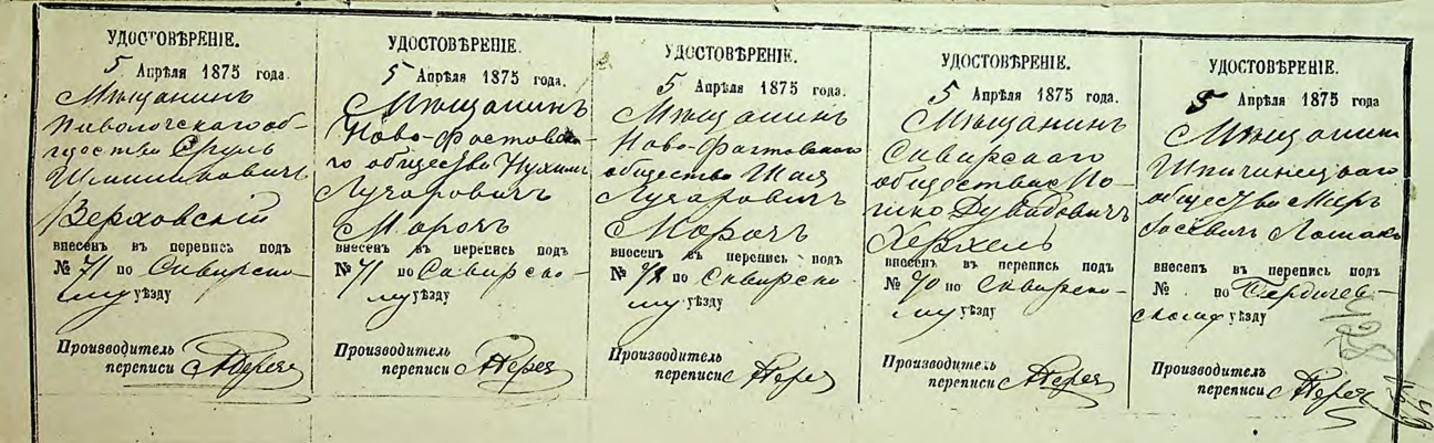 УДОСТОВѢРЕНІЕ.
5 Апрѣля 1875 года.
Мѣщанинъ
Паволочскаго об-
щества Сруль
Шмиликовичъ
Верховскій
внесенъ въ перепись подъ
№ 71 по Сквирско-
му уѣзду
Производитель
переписи
УДОСТОВѢРЕНІЕ.
5 Апрѣля 1875 года.
Мѣщанинъ
Ново-Фастовска-
го общества Нухимъ
Лузаровичъ
Морочъ
внесенъ въ перепись подъ
№ 71 по Сквирско-
му уѣзду
Производитель
переписи
УДОСТОВѢРЕНІЕ.
5 Апрѣля 1875 года.
Мѣщанинъ
Ново-Фастовскаго
общества Шая
Лузаровичъ
Морочъ
внесенъ въ перепись подъ
№ по Сквирско-
му уѣзду
Производитель
переписи
УДОСТОВѢРЕНІЕ.
5 Апрѣля 1875 года.
Мѣщанинъ
Сквирскаго
общества
Дувидовичъ
внесенъ въ перепись подъ
№ 70 по Сквирско-
му уѣзду
Производитель
переписи
УДОСТОВѢРЕНІЕ.
5 Апрѣля 1875 года
Мѣщанинъ
Шпичинецкаго
общества Меръ
Іосевичъ Лошакъ
внесенъ въ перепись подъ
№ по Бердичев-
скому уѣзду
Производитель
переписи